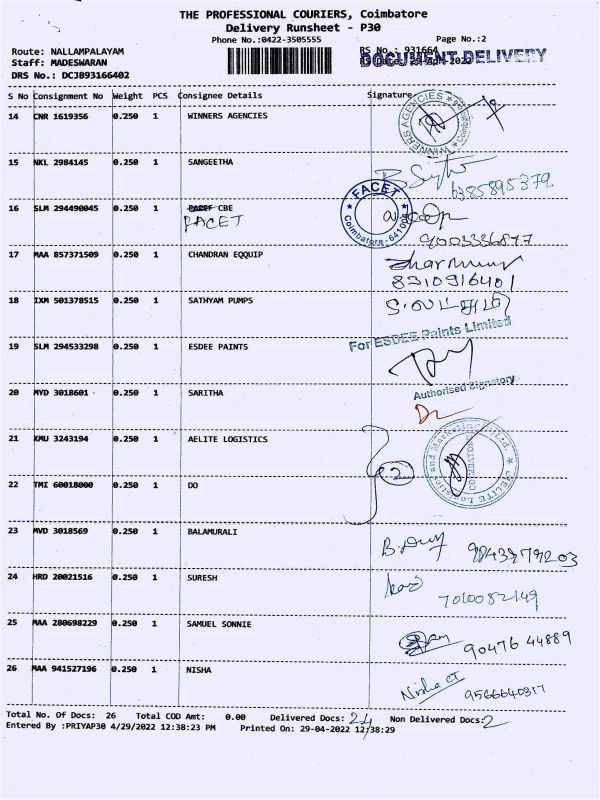 THE PROFESSIONAL COURIERS, Coimbatore
Delivery Runsheet - P30
Phone No.:0422-3505555 Page No.:2
Route: NALLAMPALAYAM RS No.: 931664
Staff: MADESWARAN RS Date: 29-Apr-2022
DOCUMENT DELIVERY
DRS No.: DCJB93166402
S No Consignment No Weight PCS Consignee Details Signature
14 CNR 1619356 0.250 1 WINNERS AGENCIES
WINNERS AGENCIES
15 NKL 2984145 0.250 1 SANGEETHA
6385895379
16 SLM 294490045 0.250 1 PACEF CBE
FACET
FACET
Coimbatore-641
9003336877
17 MAA 857371509 0.250 1 CHANDRAN EQQUIP
8310916401
18 IXM 501378515 0.250 1 SATHYAM PUMPS
19 SLM 294533298 0.250 1 ESDEE PAINTS
For ESDEE Paints Limited
Authorised Signatory
20 MYD 3018601 0.250 1 SARITHA
21 KMU 3243194 0.250 1 AELITE LOGISTICS
22 TMI 60018000 0.250 1 DO
2
23 MVD 3018569 0.250 1 BALAMURALI
24 HRD 20021516 0.250 1 SURESH
7010082149
25 MAA 280698229 0.250 1 SAMUEL SONNIE
90476 44889
26 MAA 941527196 0.250 1 NISHA
Nisha
9566640317
Total No. Of Docs: 26 Total COD Amt: 0.00 Delivered Docs: 24 Non Delivered Docs: 2
Entered By :PRIYAP30 4/29/2022 12:38:23 PM Printed On: 29-04-2022 12:38:29